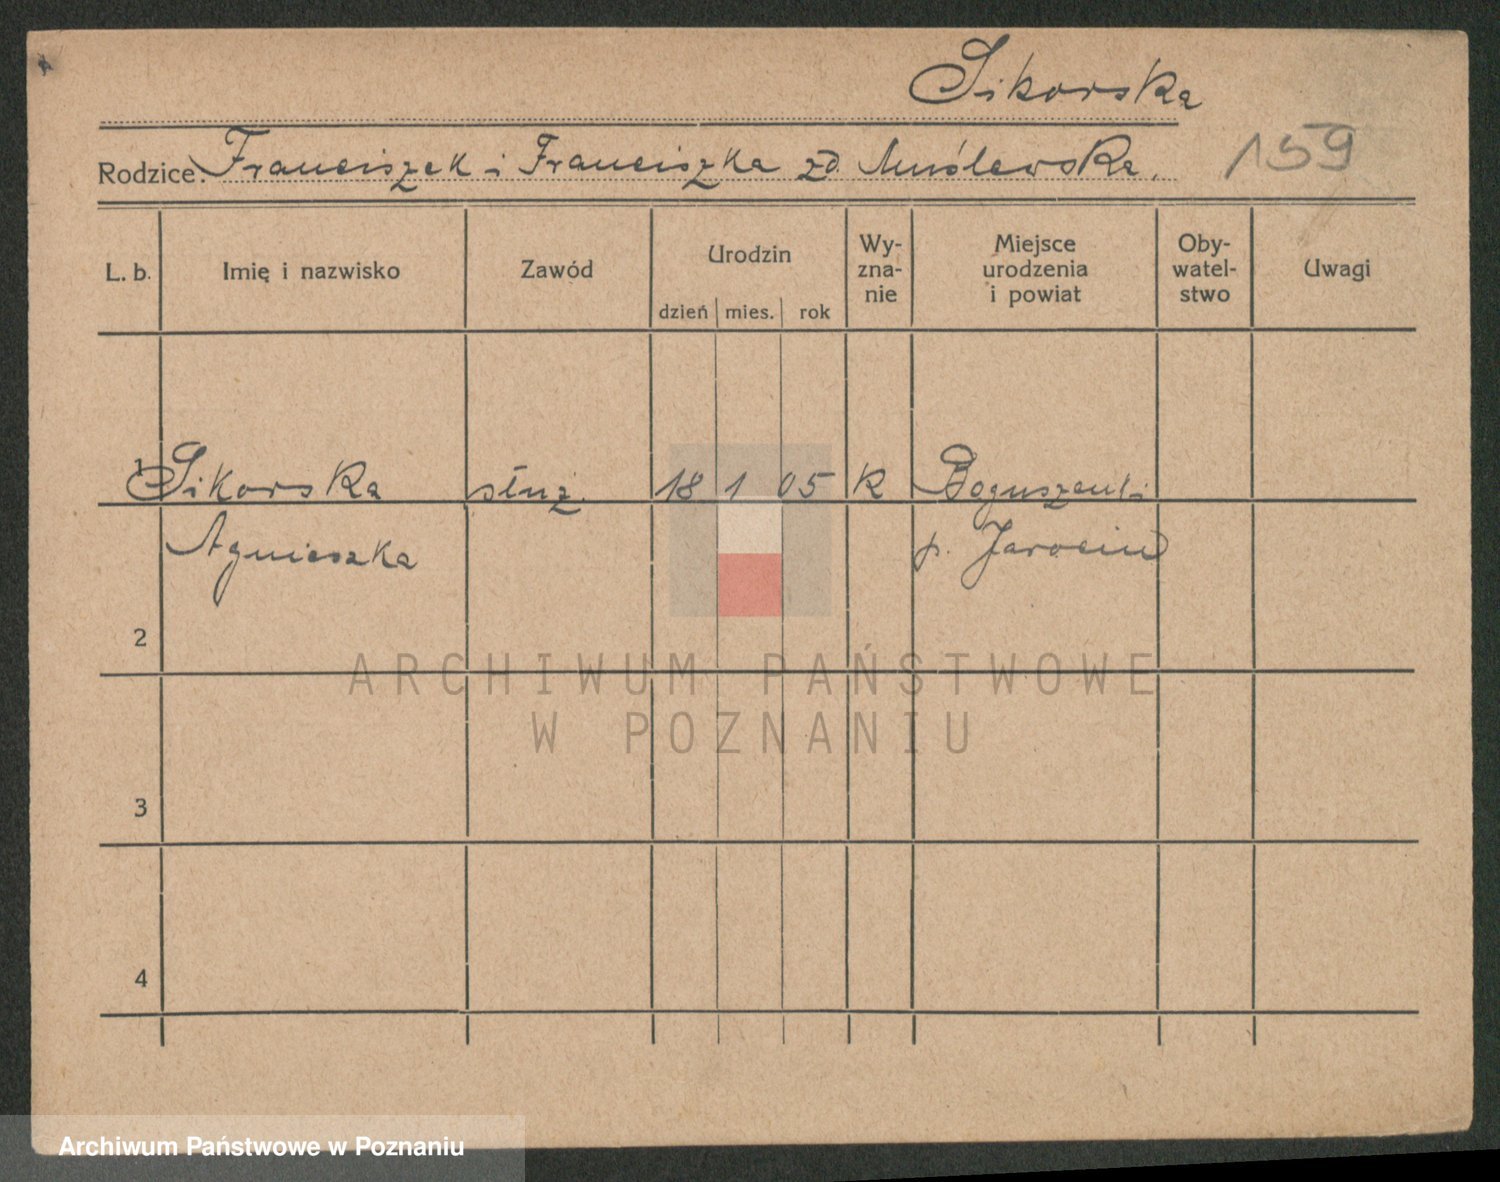 Sikorska
Rodzice: Franciszek i Franciszka zd. 159
L. b. Imię i nazwisko Zawód Urodzin dzień mies. rok Wy-zna-nie Miejsce urodzenia i powiat Oby-watel-stwo Uwagi
1 Sikorska służ. 18 1 05 K
Agnieszka p. Jarocin
2
3
4
ARCHIWUM PAŃSTWOWE
W POZNANIU
Archiwum Państwowe w Poznaniu